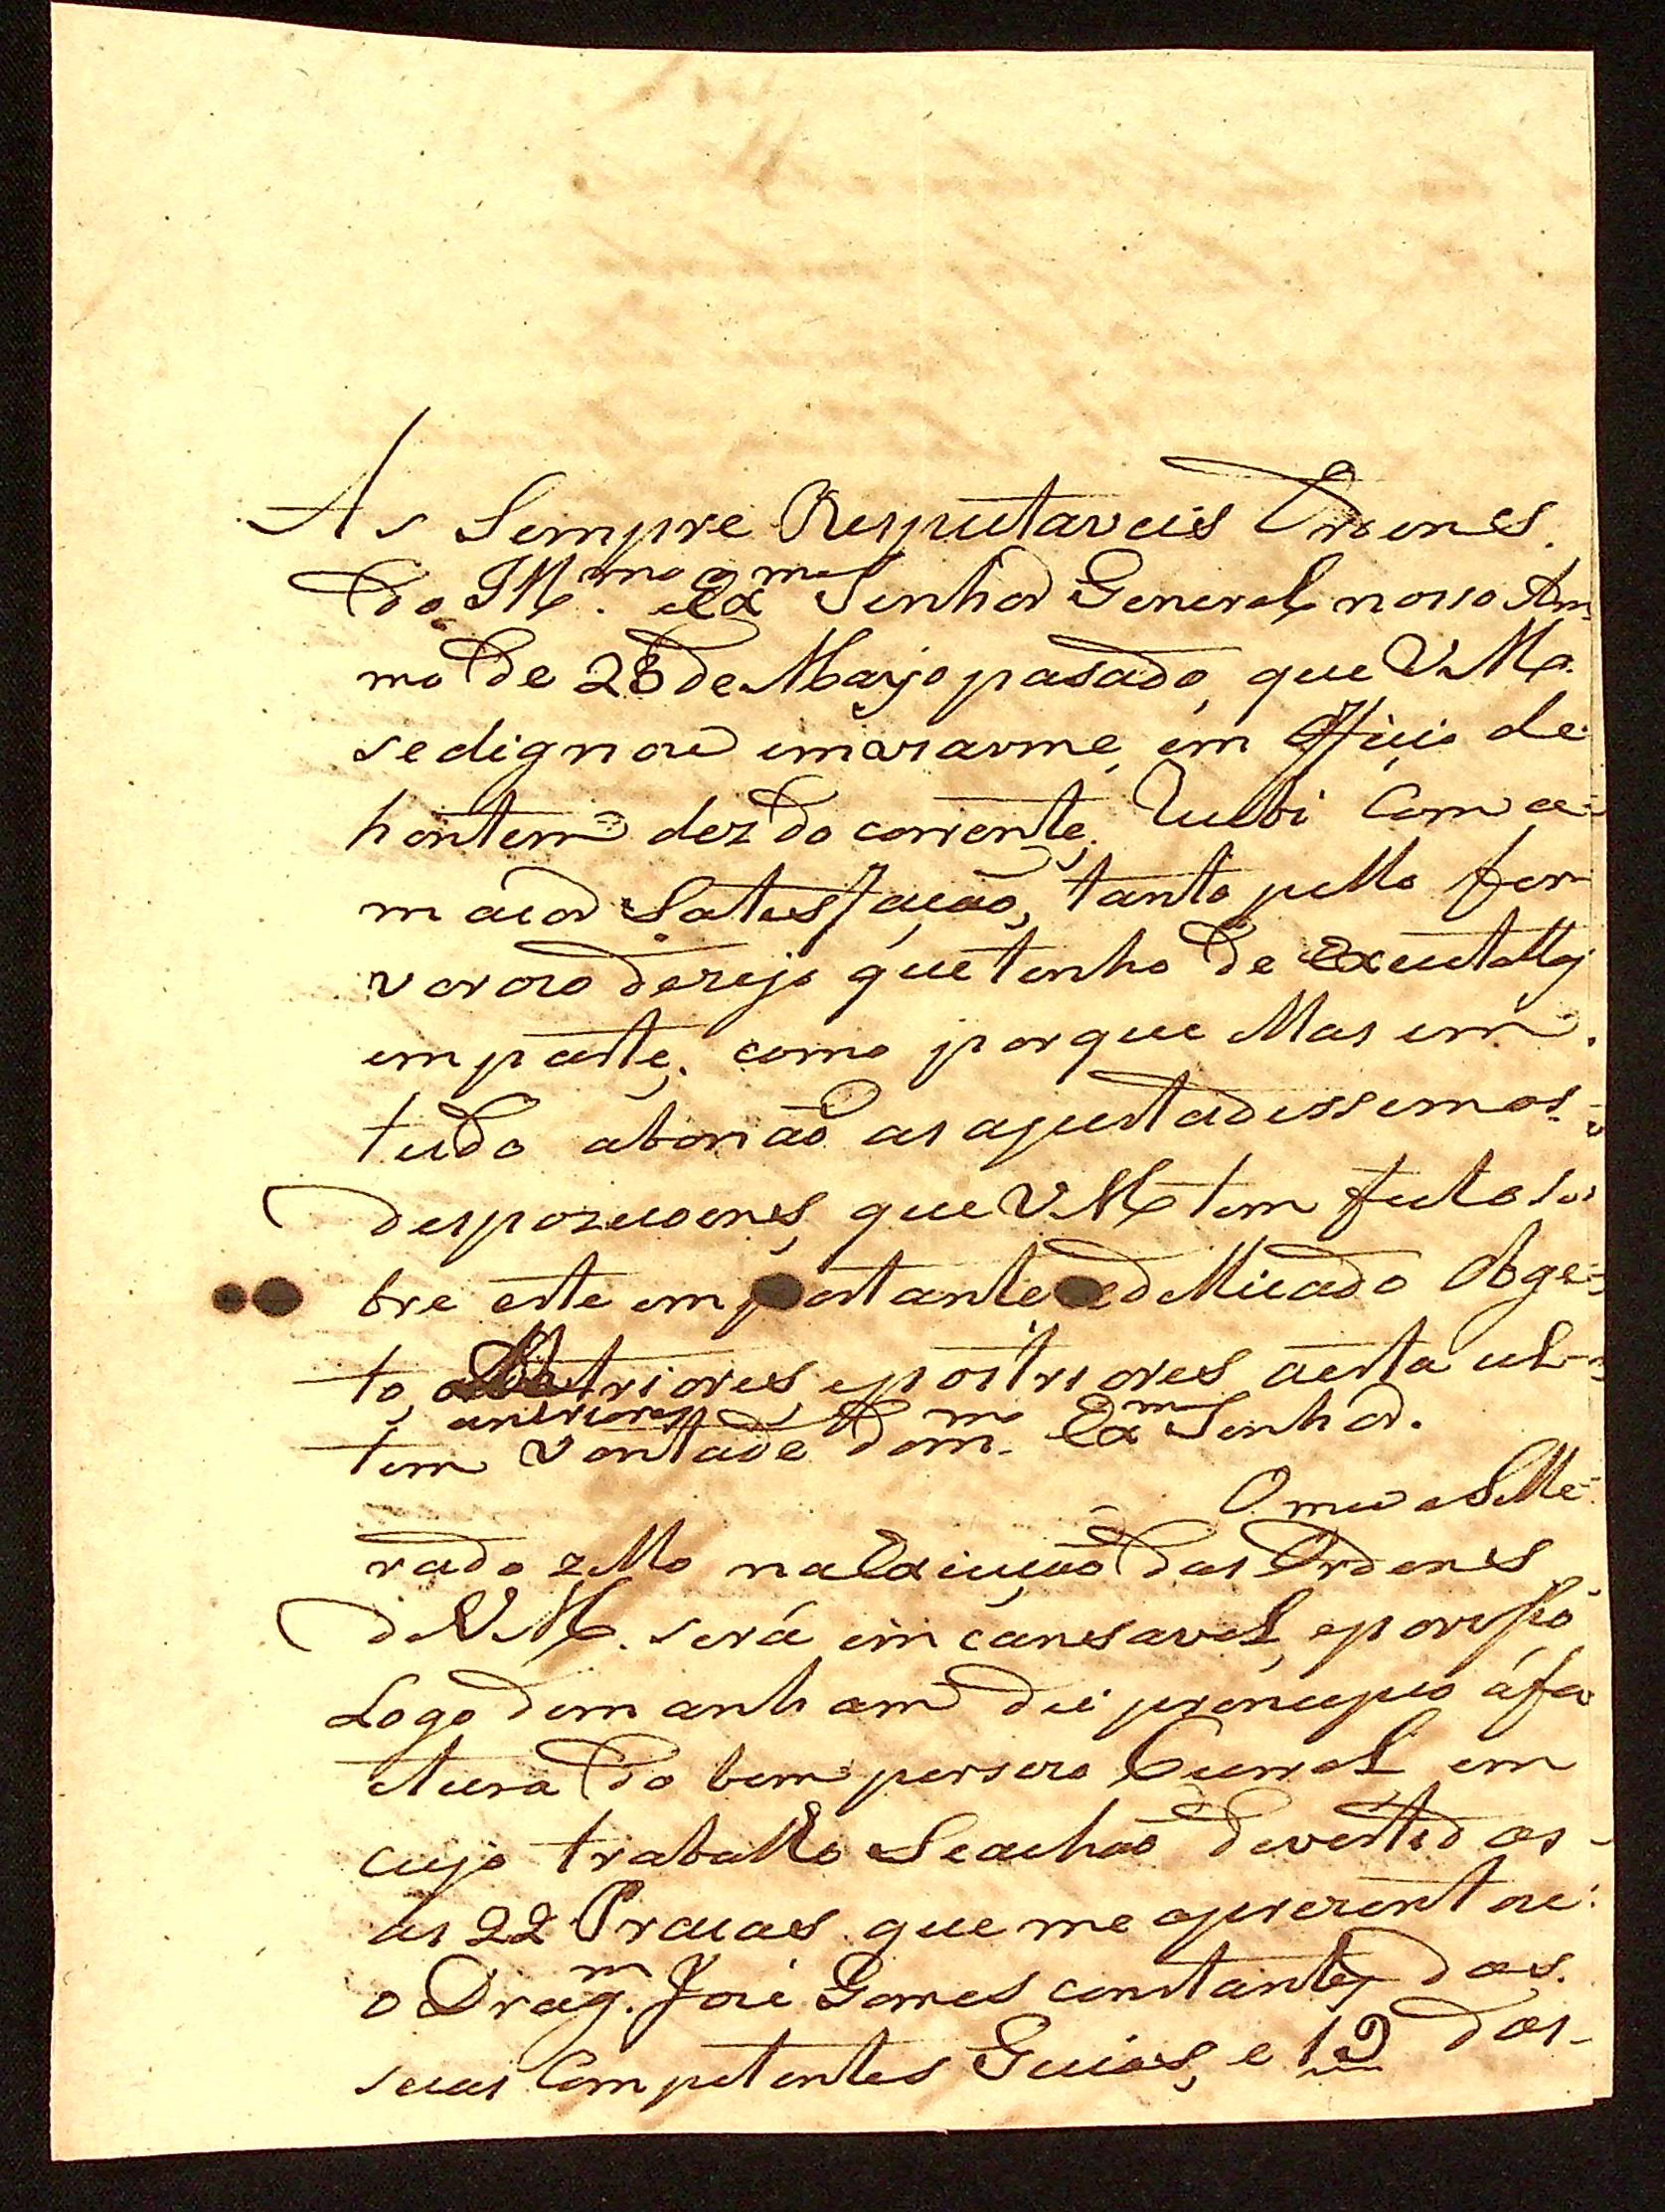 As Sempre Respeitaveis Ordenes
do Ill.mo e Ex.mo Senhor General nosso Am=
mo de 28 de Março pasado, que VM.ce
se dignou inviarme, em Officio de
hontem dez do corrente, Recebi Com a=
maior Satesfação, tanto pello fer
voroso dezejo que tenho de Executallas
em parte, como porque Mas em
tudo abonão as ajustadissemas=
despozicoens, que VM.ce tem feito so=
bre este emportante e dellicado Obge=
to, anteriores, e postriores a esta ul=
anteriores
tem vontade do m.mo Ex.mo Senhor.
O meu Elle=
rado zello na Exicução das Ordenes
de VM.ce será incansavel, e por isso
Logo de manham dei principio á fa
tura do bem percizo Curral em
cujo traballo Se achão devertidos=
as 22 Pracas que me aprezentou:
o Drag.m José Gomes constantes das
suas Competentes Guias, e 19 dos=